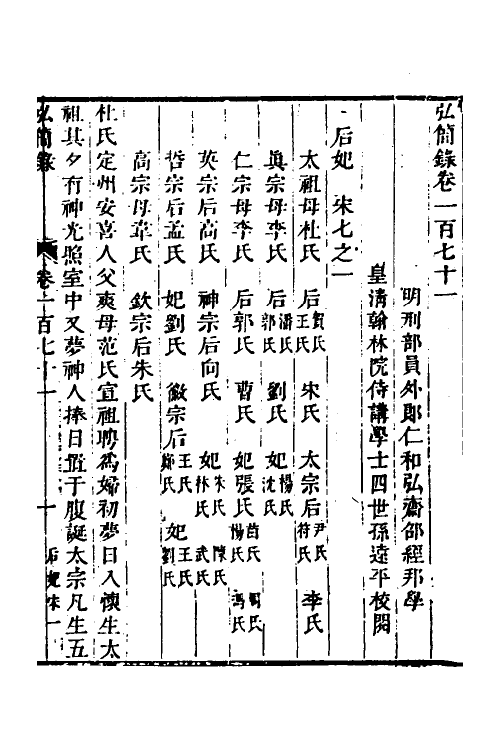 弘簡錄卷一百七十一
明刑部員外郎仁和弘齋邵經邦學
皇清翰林院侍講學士四世孫遠平校閱
后妃 宋七之一
太祖母杜氏 后賀氏王氏 宋氏 太宗后尹氏符氏 李氏
眞宗母李氏 后潘氏郭氏 劉氏 妃楊氏沈氏
仁宗母李氏 后郭氏 曹氏 妃張氏 苗氏楊氏 周氏馮氏
英宗后高氏 神宗后向氏 妃朱氏林氏 陳氏武氏
哲宗后孟氏 妃劉氏 徽宗后王氏鄭氏 妃王氏劉氏
高宗母韋氏 欽宗后朱氏
杜氏定州安喜人父爽母范氏宣祖聘爲婦初夢日入懷生太
祖其夕有神光照室中又夢神人捧日置于腹誕太宗凡生五
弘簡錄 卷一百七十一 后妃宋一